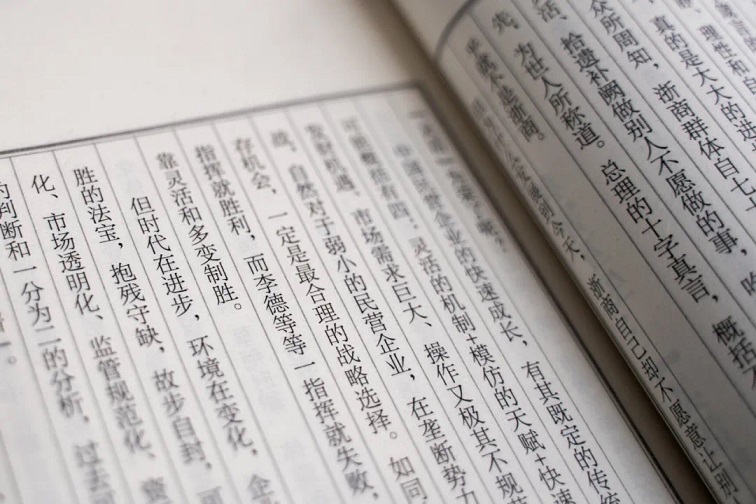 理性和
真的是大大的进
众所周知，浙商群体自七
活、拾遗补阙做别人不愿做的事，
先、为世人所称道。总理的十字真言，概括
就不是浙商。
说到今天，浙商自己却不愿意让别
民营企业的快速成长，有其既定的传统
可能概括有四：灵活的机制+模仿的天赋+快速
发财机遇、市场需求巨大、操作又极其不规
战，自然对于弱小的民营企业，在垄断势力
存机会，一定是最合理的战略选择。如同
指挥就胜利，而李德等等一指挥就失败，
靠灵活和多变制胜。
但时代在进步，环境在变化，企
胜的法宝，抱残守缺，故步自封，可
化、市场透明化、监管规范化、
的判断和一分为二的分析，过去